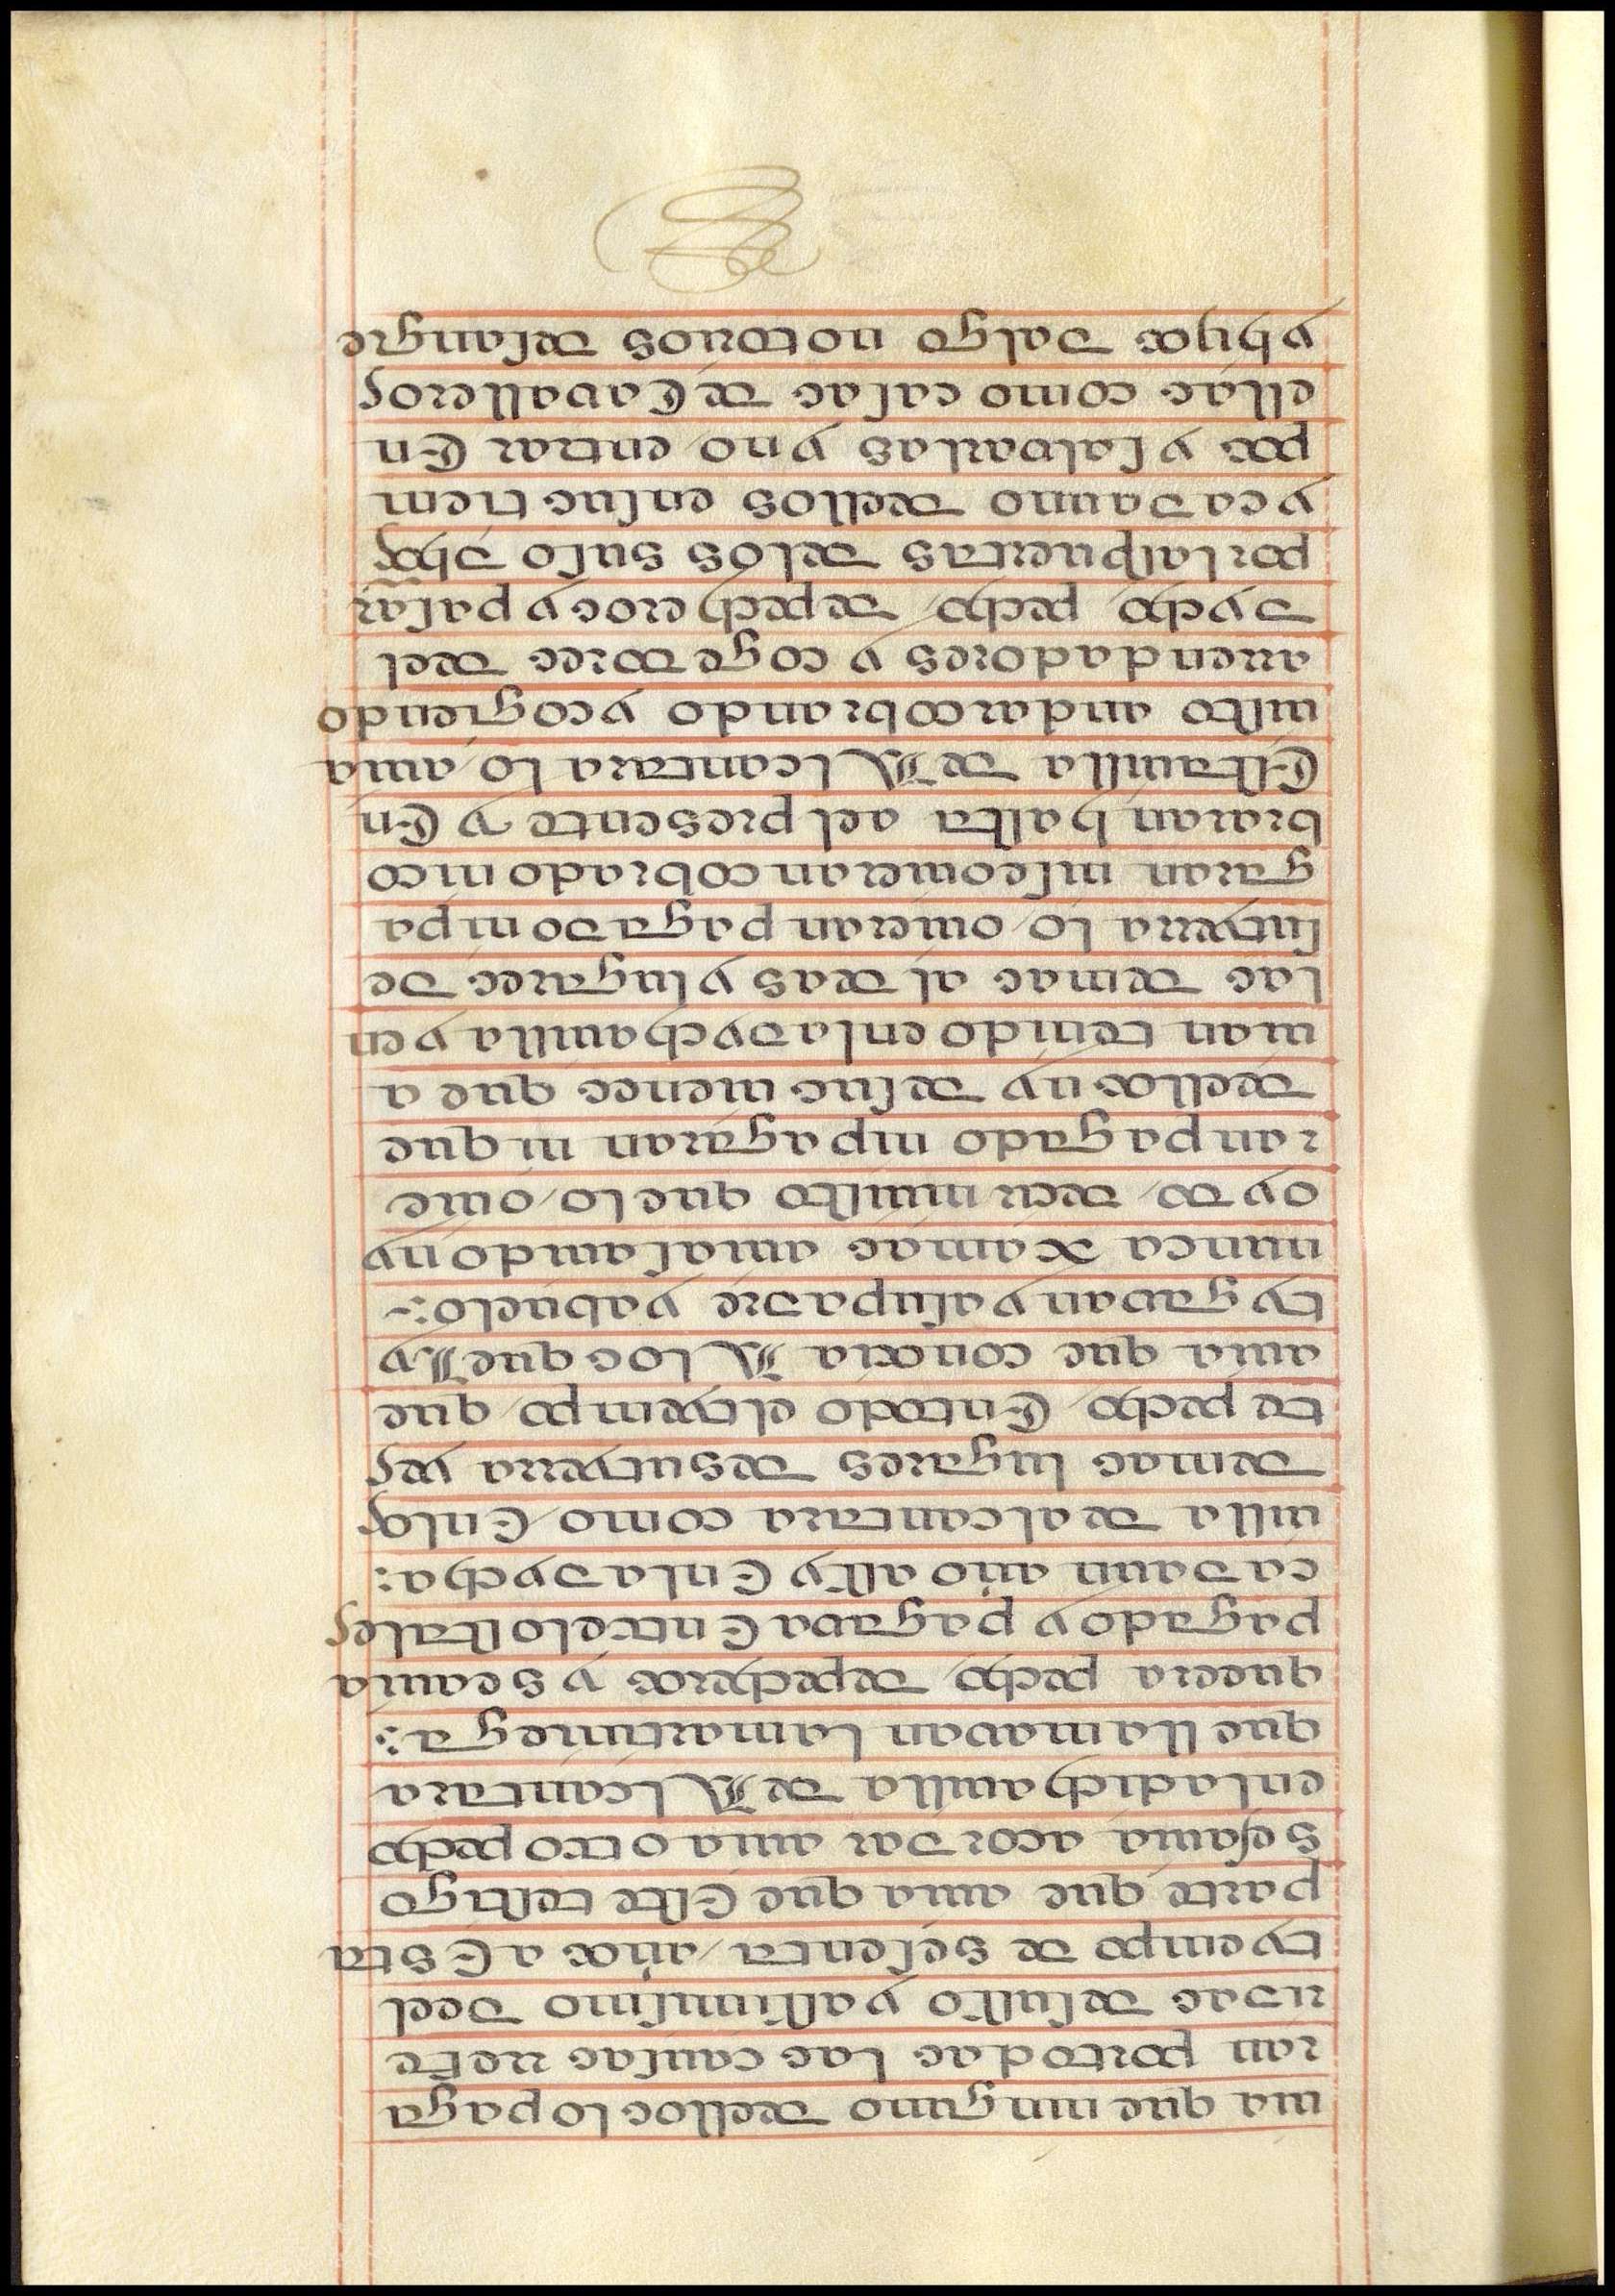 ma que ninguno dellos lo paga
ran portodas las
desusso y assimismo deel
tyempo de sesenta años a Esta
parte que auia que Este testigo
sehauia acordar auia otro pecho
enladicha uilla de Alcantara
que llamauan lamartiniega:
queera pecho de pecheros y seauia
pagado y pagaua
cadaun año Enladycha:
uilla dealcantara como Enlos
demas lugares desutyerra yes
te pecho Entodo eltyempo que
auia que conocia Alos que
lytygauan yasupadre yabuelo:~
nunca xamas auiasauido ny
oydo decir niuisto que lo ouie
ran pagado nipagaran ni que
dellos ny desus uienes que a
uian tenido enladychauilla yen
las demas aldeas y lugares de
sutyerra lo ouieran pagado nipa
garan niseouieran cobrado nico
braran hasta ael presente y En
Esta uilla de Alcantara lo auia
uisto andar cobrando y cogiendo
arrendadores y cogedores del
dycho pecho depecheros y pasar
por laspuertas delos suso dichos
y cadauno dellos ensus tiem
pos y saluarlas y no entrar En
ellas como casas de Caualleros
y hijos dalgo notorios desangre